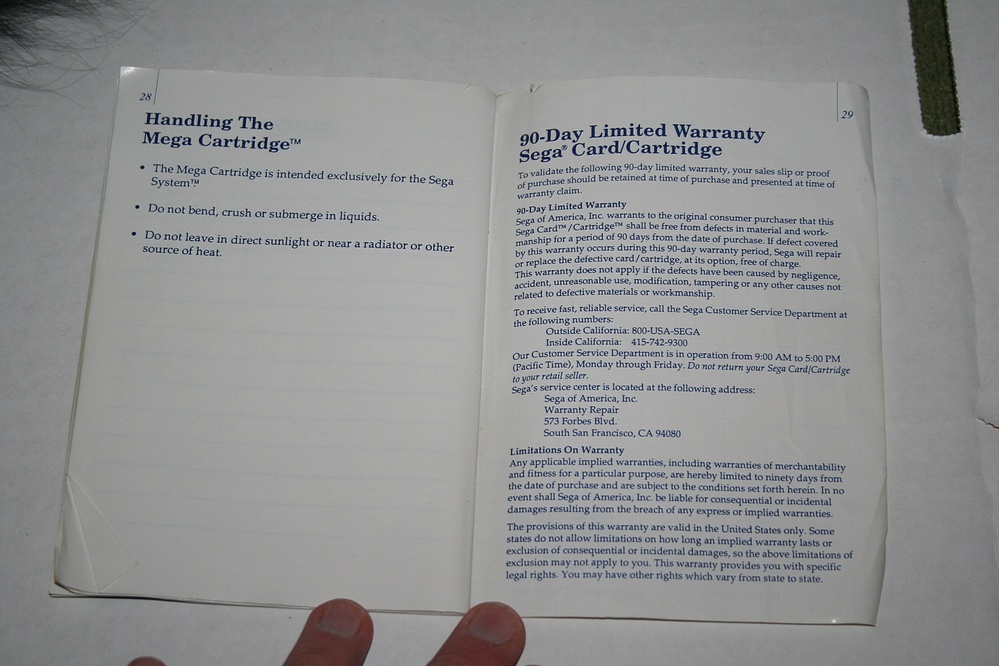 28
Handling The
Mega Cartridge™
• The Mega Cartridge is intended exclusively for the Sega
System™
• Do not bend, crush or submerge in liquids.
• Do not leave in direct sunlight or near a radiator or other
source of heat.
29
90-Day Limited Warranty
Sega® Card/Cartridge
To validate the following 90-day limited warranty, your sales slip or proof
of purchase should be retained at time of purchase and presented at time of
warranty claim.
90-Day Limited Warranty
Sega of America, Inc. warrants to the original consumer purchaser that this
Sega Card™/Cartridge™ shall be free from defects in material and work-
manship for a period of 90 days from the date of purchase. If defect covered
by this warranty occurs during this 90-day warranty period, Sega will repair
or replace the defective card/cartridge, at its option, free of charge.
This warranty does not apply if the defects have been caused by negligence,
accident, unreasonable use, modification, tampering or any other causes not
related to defective materials or workmanship.
To receive fast, reliable service, call the Sega Customer Service Department at
the following numbers:
Outside California: 800-USA-SEGA
Inside California: 415-742-9300
Our Customer Service Department is in operation from 9:00 AM to 5:00 PM
(Pacific Time), Monday through Friday. Do not return your Sega Card/Cartridge
to your retail seller.
Sega's service center is located at the following address:
Sega of America, Inc.
Warranty Repair
573 Forbes Blvd.
South San Francisco, CA 94080
Limitations On Warranty
Any applicable implied warranties, including warranties of merchantability
and fitness for a particular purpose, are hereby limited to ninety days from
the date of purchase and are subject to the conditions set forth herein. In no
event shall Sega of America, Inc. be liable for consequential or incidental
damages resulting from the breach of any express or implied warranties.
The provisions of this warranty are valid in the United States only. Some
states do not allow limitations on how long an implied warranty lasts or
exclusion of consequential or incidental damages, so the above limitations of
exclusion may not apply to you. This warranty provides you with specific
legal rights. You may have other rights which vary from state to state.